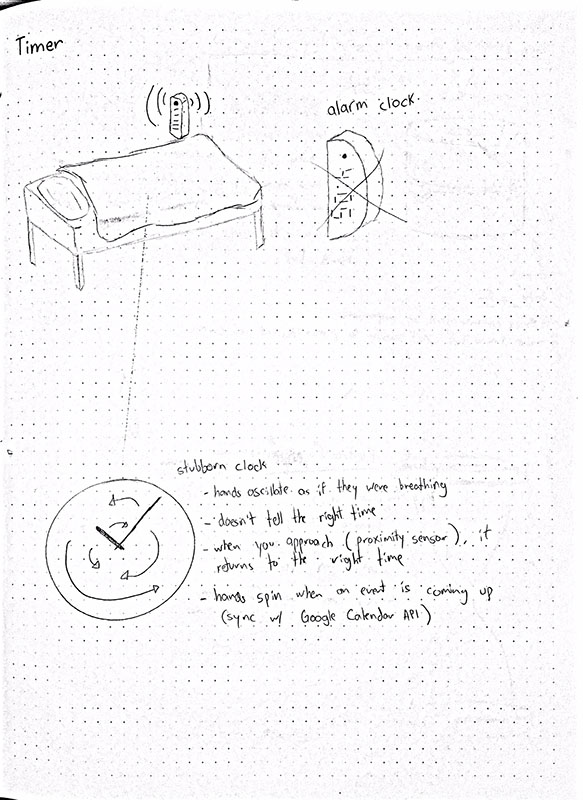 Timer
alarm clock.
stubborn clock
- hands oscillate as if they were breathing
- doesn't tell the right time
- when you approach (proximity sensor), it
returns to the right time
- hands spin when an event is coming up
(sync w/ Google Calendar API)